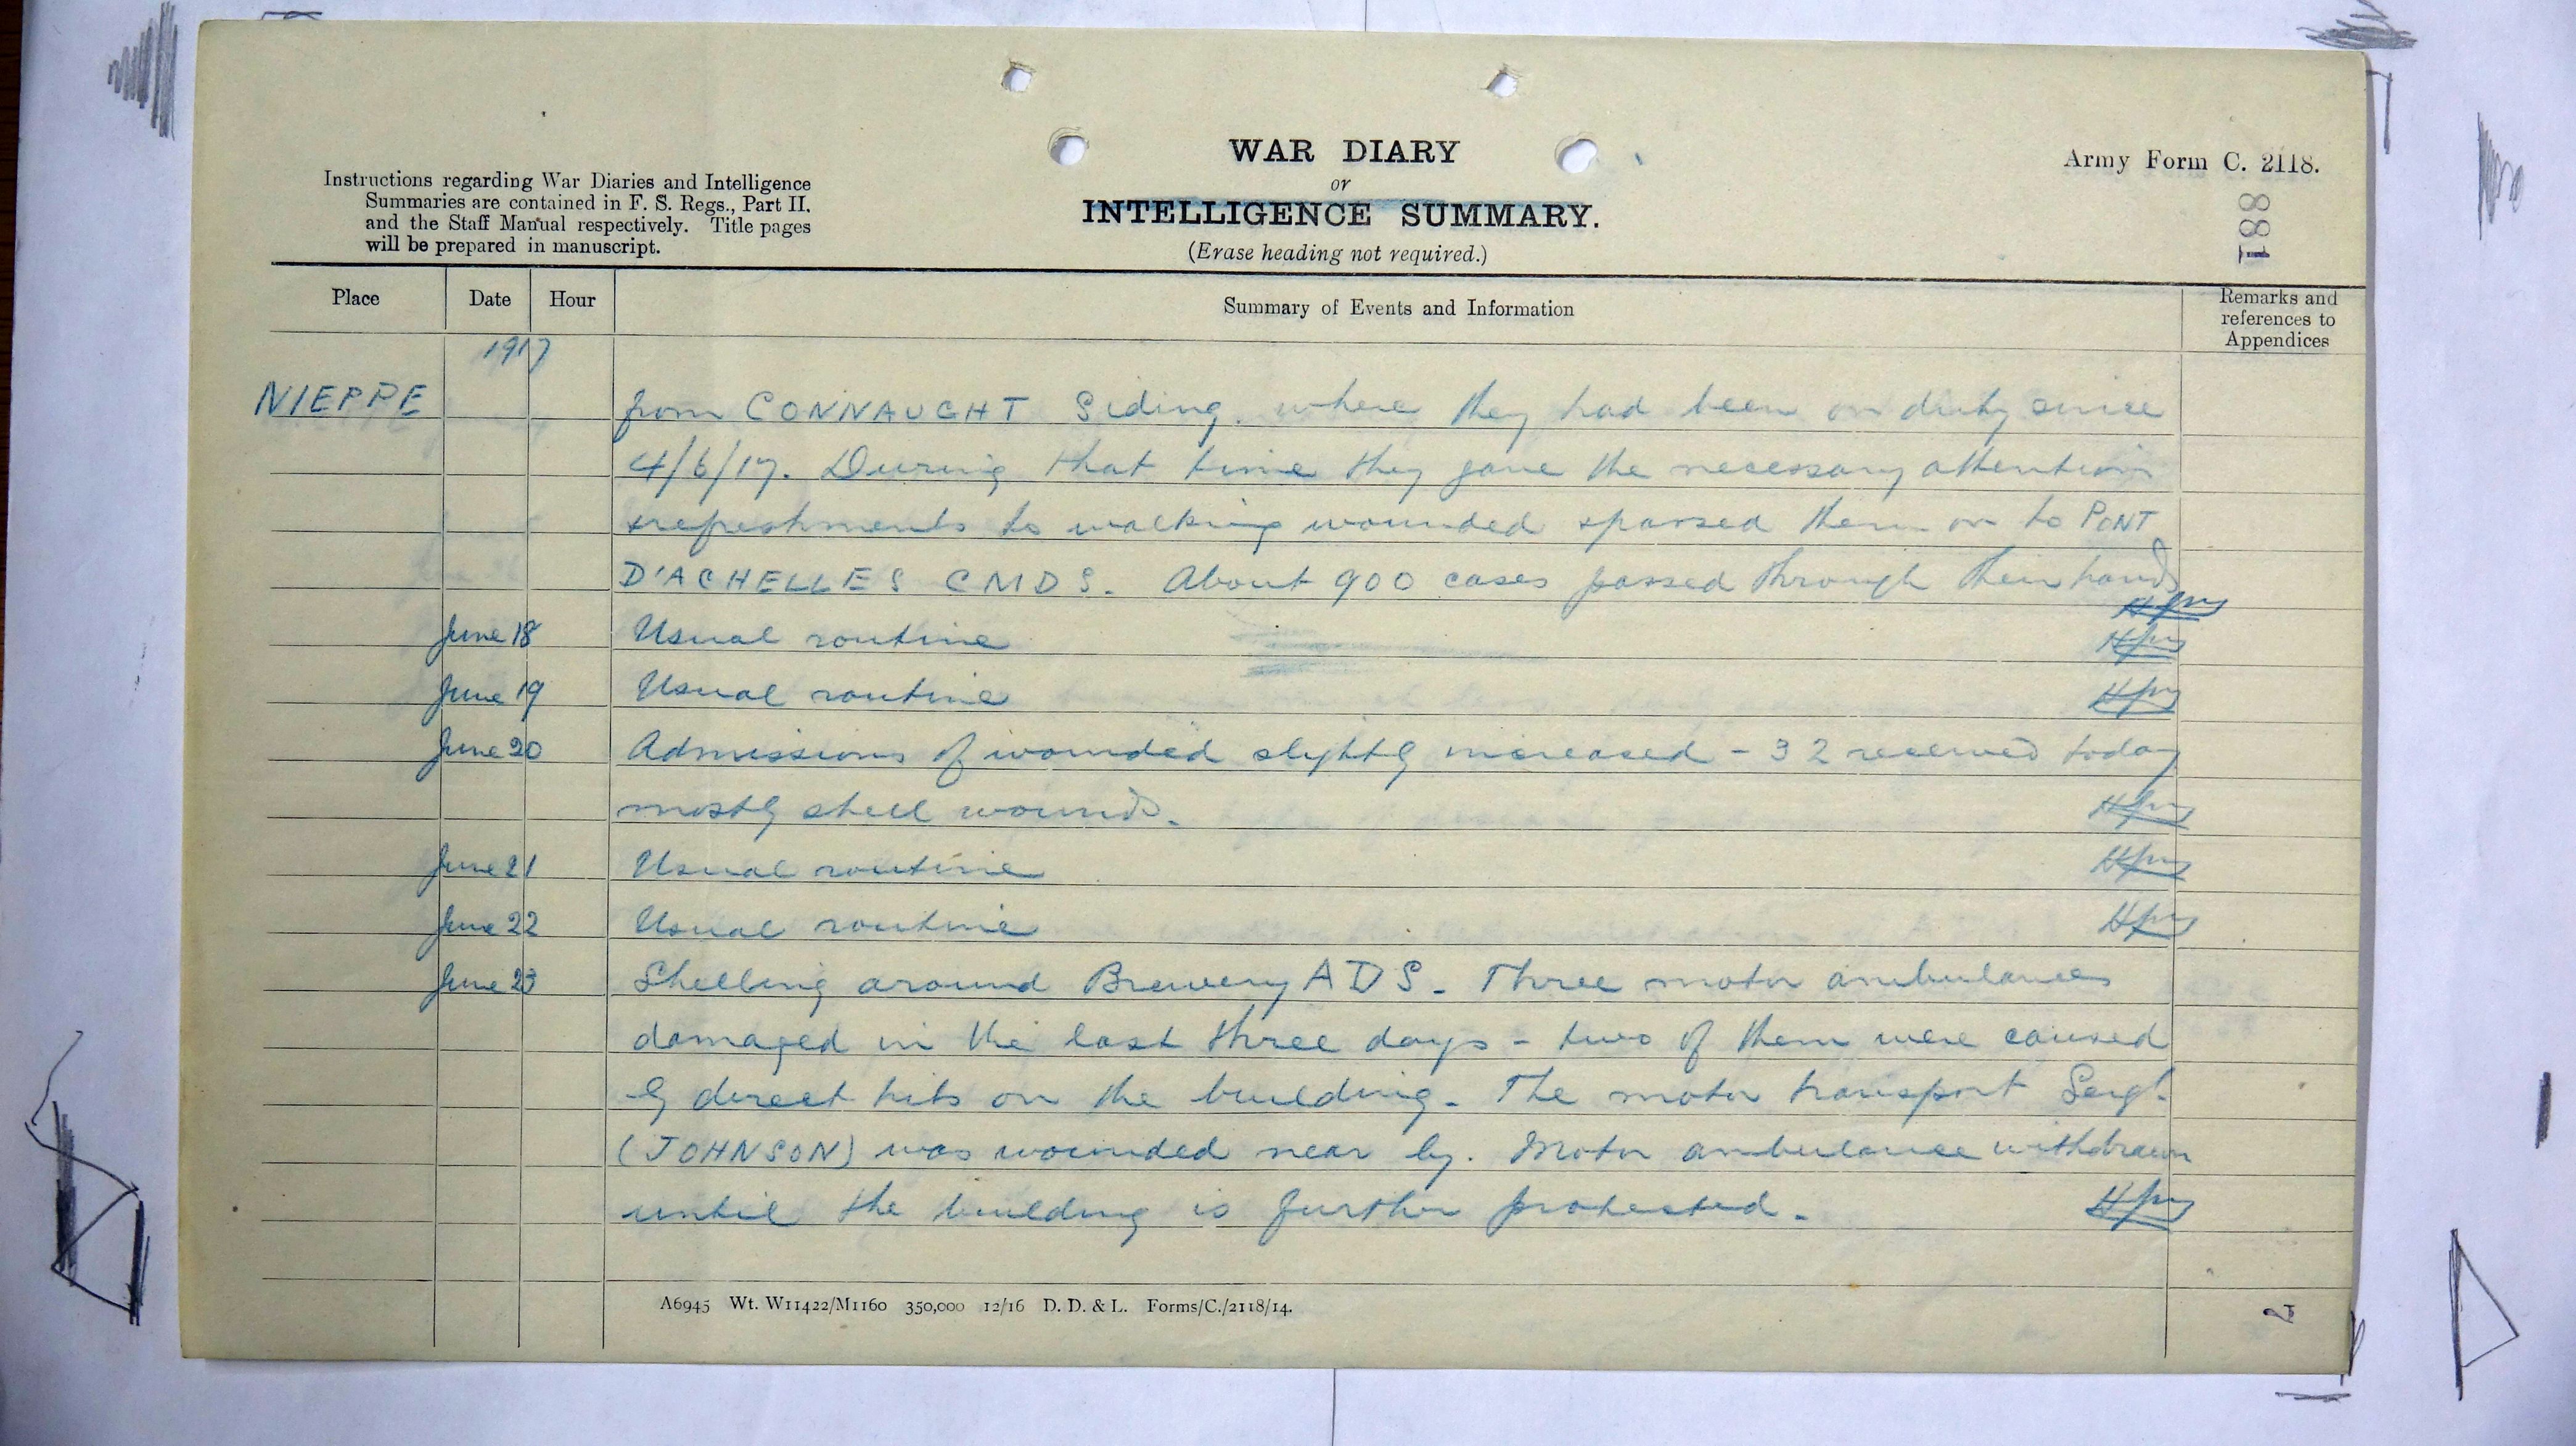 WAR DIARY
or
INTELLIGENCE SUMMARY.
(Erase heading not required.)
Army Form C. 2118.
1881
Instructions regarding War Diaries and Intelligence
Summaries are contained in F. S. Regs., Part II.
and the Staff Manual respectively. Title pages
will be prepared in manuscript.
Place Date Hour Summary of Events and Information Remarks and references to Appendices
1917
NIEPPE from CONNAUGHT Siding. where they had been on duty since
4/6/17. During that time they gave the necessary attention
& refreshments to walking wounded & passed them on to PONT
D'ACHELLES CMDS. About 900 cases passed through their hands
June 18 Usual routine
June 19 Usual routine
June 20 Admissions of wounded slightly increased - 32 received today
mostly shell wounds.
June 21 Usual routine
June 22 Usual routine
June 23 Shelling around Brewery ADS. Three motor ambulances
damaged in the last three days - two of them were caused
by direct hits on the building. The motor transport Sergt.
(JOHNSON) was wounded near by. Motor ambulance withdrawn
until the building is further protected.
A6945 Wt. W11422/M1160 350,000 12/16 D. D. & L. Forms/C./2118/14.